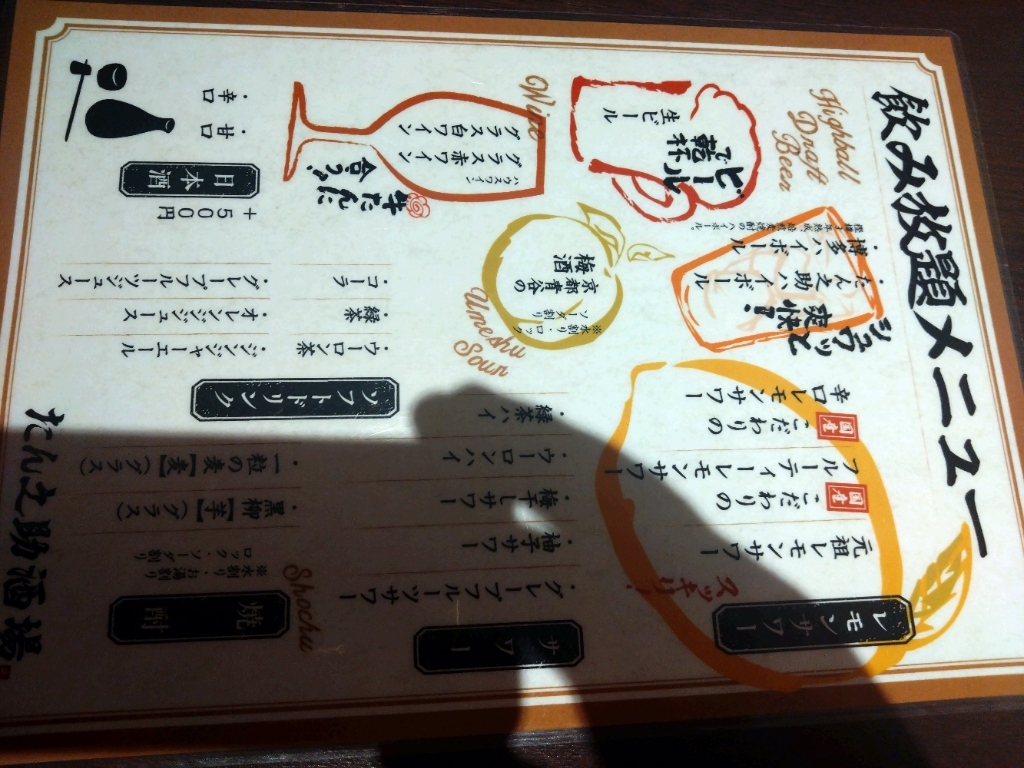 飲み放題メニュー
Highball
Draft
Beer
ビールで乾杯!
生ビール
シュワッと爽快!
・博多ハイボール
・たん之助ハイボール
レモンサワー
スッキリ!
元祖レモンサワー
国産
こだわりの
フルーティーレモンサワー
国産
こだわりの
辛口レモンサワー
Wine
牛たんに合う!
ハウスワイン
グラス赤ワイン
グラス白ワイン
京都青谷の
梅酒
※水割り・ロック
ソーダ割り
Umeshu
Sour
サワー
・グレープフルーツサワー
・柚子サワー
・梅干しサワー
・ウーロンハイ
・緑茶ハイ
日本酒
+500円
・辛口
・甘口
ソフトドリンク
・ウーロン茶
・緑茶
・コーラ
・ジンジャーエール
・オレンジジュース
・グレープフルーツジュース
Shochu
焼酎
※水割り・お湯割り
ロック・ソーダ割り
・黒柳【芋】(グラス)
・一粒の麦【麦】(グラス)
たん之助酒場